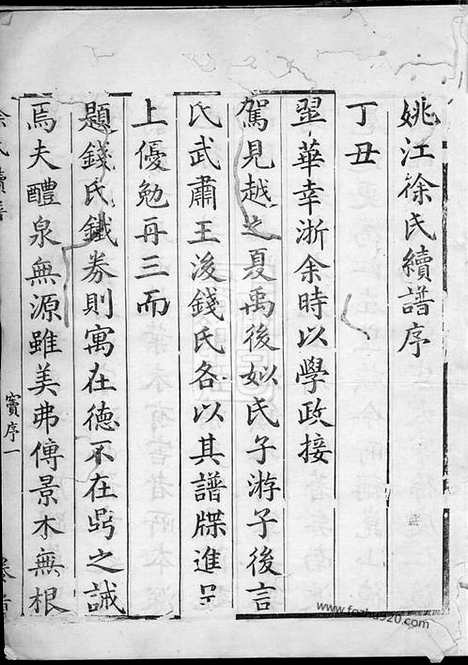 姚江徐氏續譜序
丁丑
翠華幸浙余時以學政接
駕見越之夏禹後姒氏子游子後言
氏武肅王後錢氏各以其譜牒進呈
上優勉再三而
題錢氏鐵券則寓在德不在號之誡
焉夫醴泉無源雖美弗傳景木無根
徐氏續譜
竇序一
卷首
www.fozhu920.com